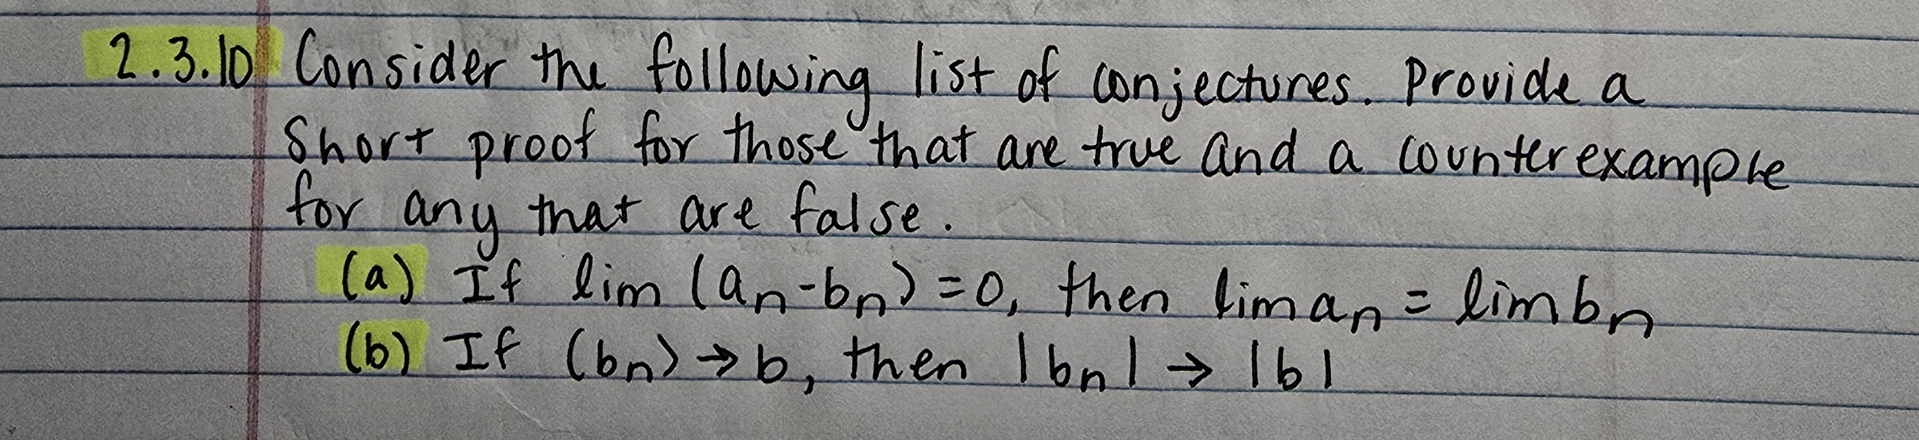 2.3.10 Consider the following list of conjectures. Provide a
Short proof for those that are true and a counterexample
for any that are false.
(a) If lim (aₙ-bₙ)=0, then lim aₙ = lim bₙ
(b) If (bₙ)→b, then |bₙ| → |b|